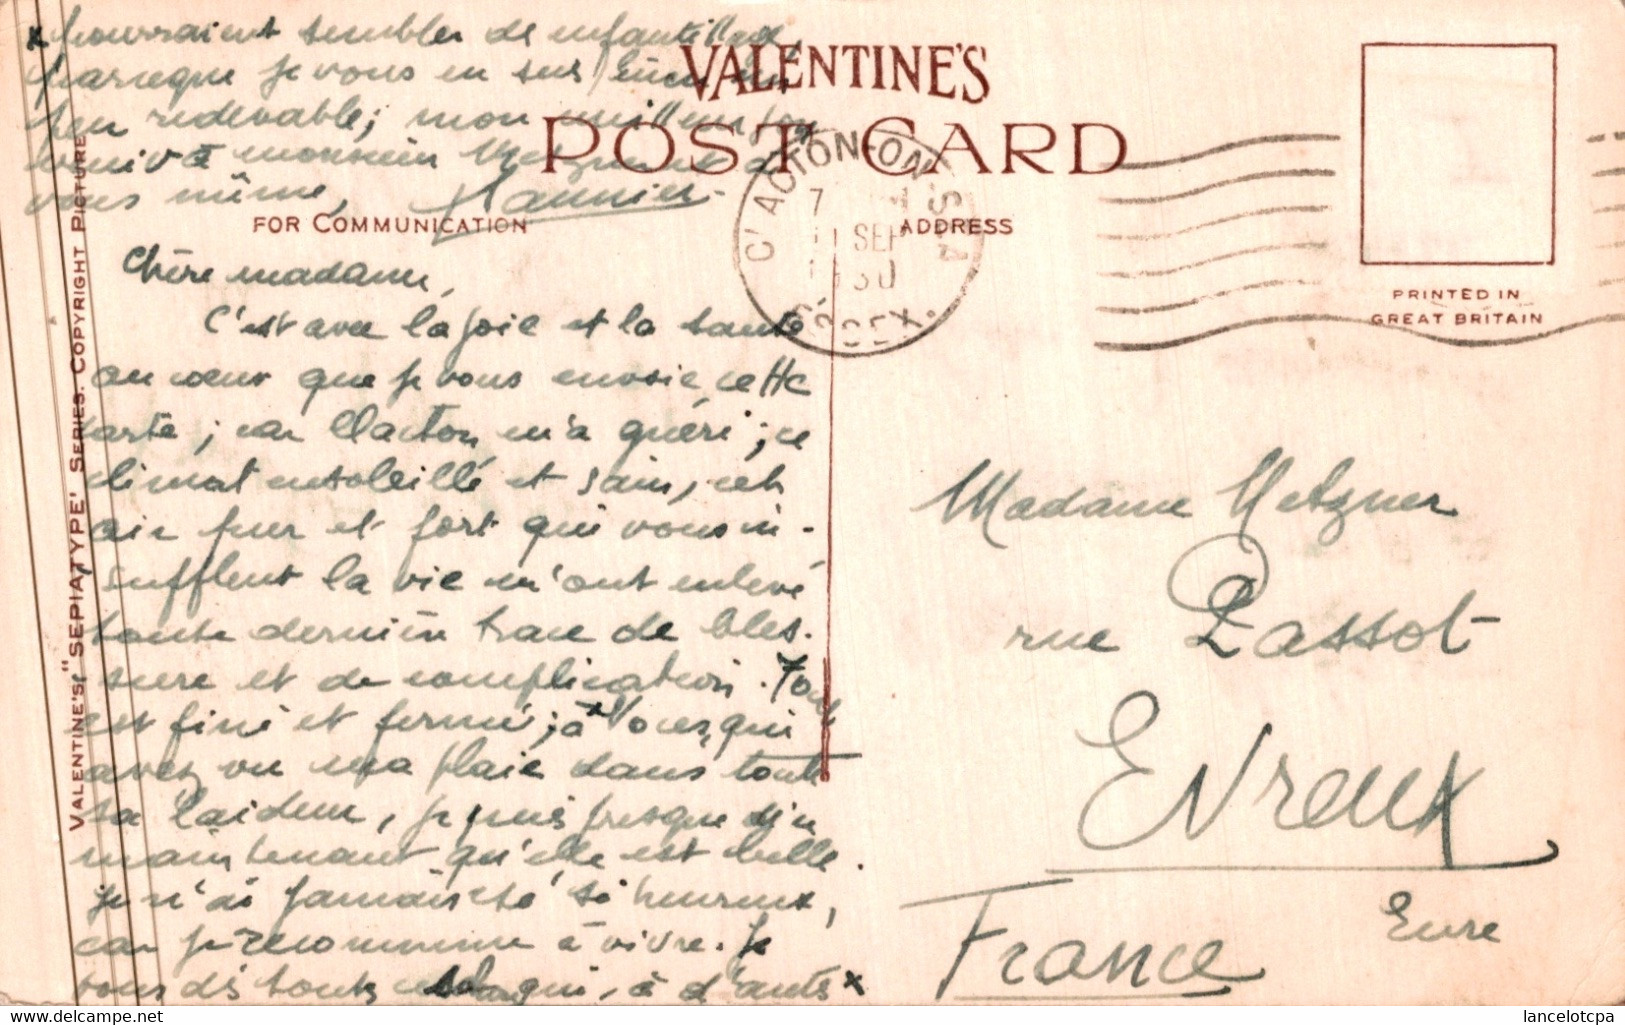 x pourraient sembler de enfantillage,
parceque je vous en suis bien un
peu redevable; mon meilleur sou
venir à monsieur Metzner et à
vous même,
VALENTINE'S
POST CARD
FOR COMMUNICATION
ADDRESS
CLACTON-ON-SEA
7
11 SEP
1930
ESSEX.
PRINTED IN
GREAT BRITAIN
VALENTINE'S "SEPIATYPE" SERIES. COPYRIGHT PICTURE
Chère madame,
C'est avec la joie et la santé
au coeur que je vous envoie cette
carte; car Clacton m'a guéri; ce
climat ensoleillé et sain, cet
air pur et fort qui vous in-
sufflent la vie m'ont enlevé
toute dernière trace de bles-
sure et de complication. Tout
est fini et fermé; à vous, qui
avez vu ma plaie dans toute
sa laideur, je puis presque dire
maintenant qu'elle est belle.
je n'ai jamais été si heureux,
car je recommence à vivre. Je
vous dis toutes qui, à d'autres x
Madame Metzner
rue Passot
Evreux
Eure
France
lancelotcpa